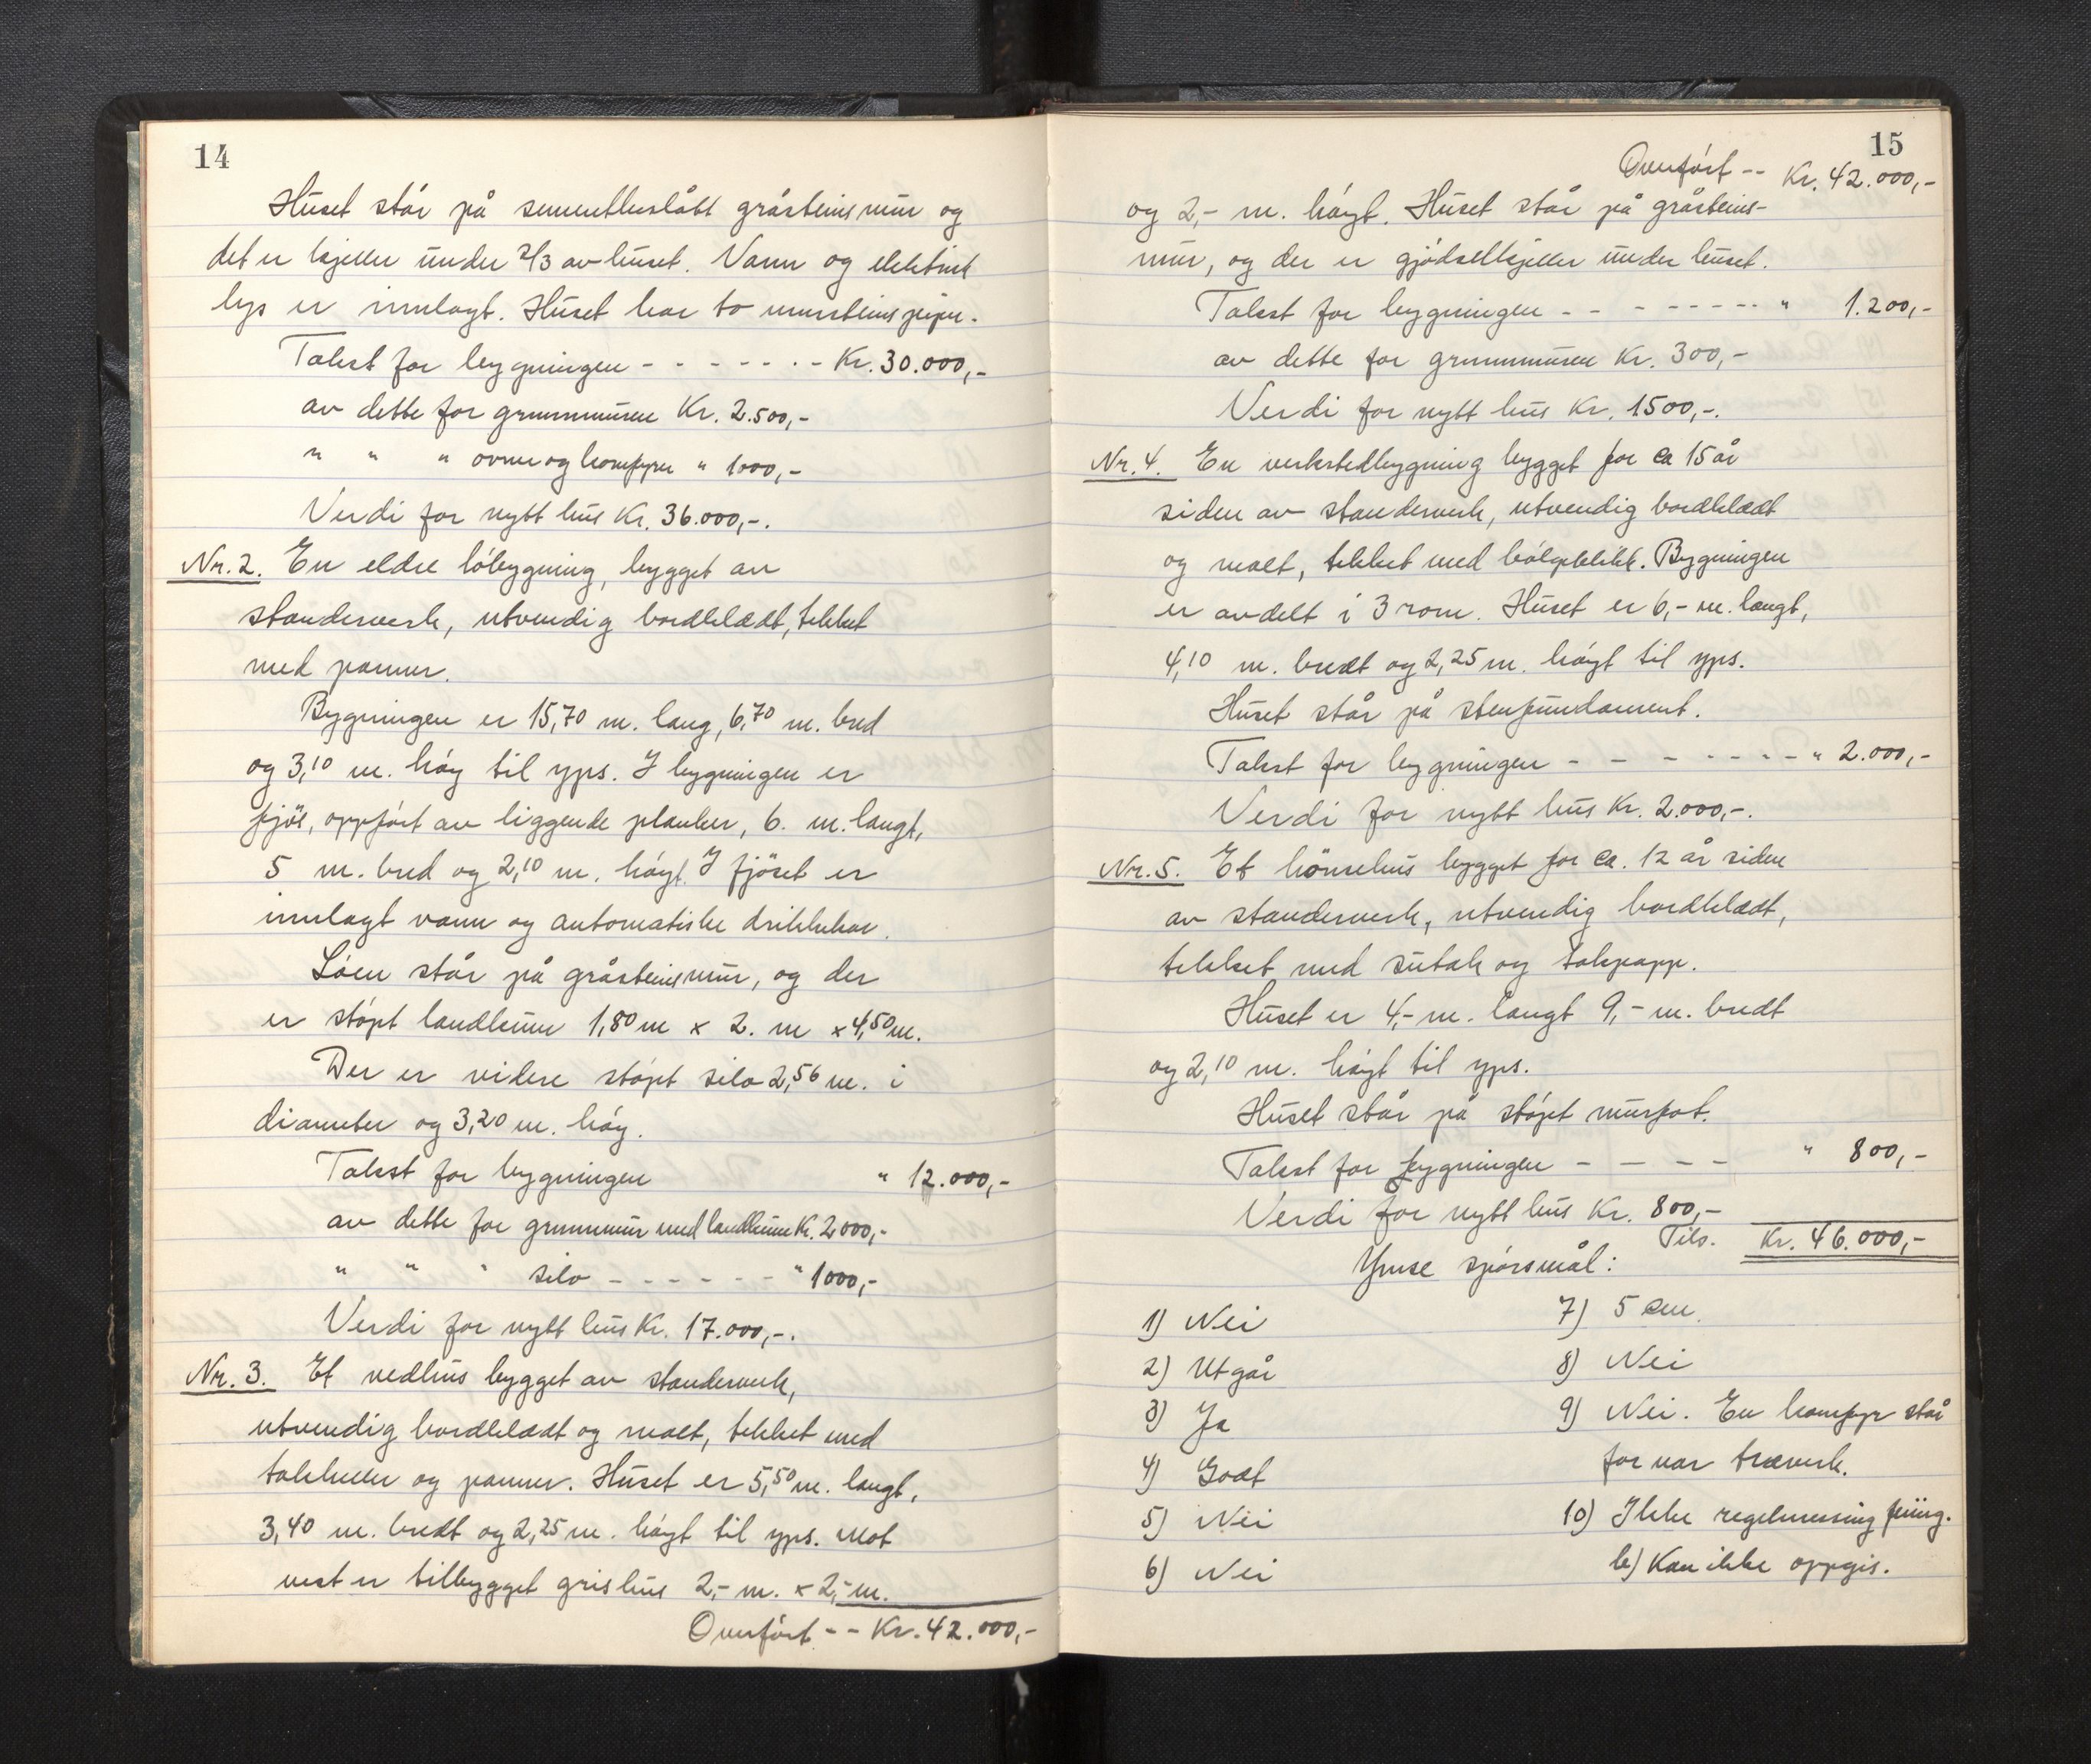 14
Huset står på sementherslått gråsteinsmur og
det er kjeller under 2/3 av huset. Vann og elektrisk
lys er innlagt. Huset har to mursteinspiper.
Takst for bygningen - - - - - - - Kr. 30.000,-
av dette for grunnmuren Kr. 2.500,-
" " " ovner og komfyrer " 1000,-
Verdi for nytt hus Kr. 36.000,-.
Nr. 2. En eldre löbygning, bygget av
standerverk, utvendig bordkledt, tekket
med panner.
Bygningen er 15,70 m. lang, 6,70 m. bred
og 3,10 m. höy til yps. I bygningen er
fjös, oppfört av liggende planker, 6. m. langt,
5 m. bred og 2,10 m. höyt. I fjöset er
innlagt vann og automatiske drikkekar.
Löen står på gråsteinsmur, og der
er stöpt landkum 1,80 m x 2. m x 4,50 m.
Der er videre stöpt silo 2,56 m. i
diameter og 3,20 m. höy.
Takst for bygningen " 12.000,-
av dette for grunnmur med landkum Kr. 2000,-
" " " silo - - - - - - " 1000,-
Verdi for nytt hus Kr. 17.000,-.
Nr. 3. Et vedhus bygget av standerverk,
utvendig bordkledt og malt, tekket med
takheller og panner. Huset er 5,50 m. langt,
3,40 m. bredt og 2,25 m. höyt til yps. Mot
vest er tilbygget grishus 2,- m. x 2,- m.
Overfört - - Kr. 42.000,-
15
Overfört -- Kr. 42.000,-
og 2,- m. höyt. Huset står på gråsteins-
mur, og der er gjödselkjeller under huset.
Takst for bygningen - - - - - - - - " 1.200,-
av dette for grunnmuren Kr. 300,-
Verdi for nytt hus Kr. 1500,-.
Nr. 4. En verkstedbygning bygget for ca 15 år
siden av standerverk, utvendig bordkledt
og malt, tekket med bölgeblikk. Bygningen
er avdelt i 3 rom. Huset er 6,- m. langt,
4,10 m. bredt og 2,25 m. höyt til yps.
Huset står på stenfundament.
Takst for bygningen - - - - - - - - " 2.000,-
Verdi for nytt hus Kr. 2.000,-.
Nr. 5. Et hönsehus bygget for ca. 12 år siden
av standerverk, utvendig bordkledt,
tekket med sutak og takpapp.
Huset er 4,- m. langt 9,- m. bredt
og 2,10 m. höyt til yps.
Huset står på stöpt murfot.
Takst for bygningen - - - - " 800,-
Verdi for nytt hus Kr. 800,-
Tils. Kr. 46.000,-
Ymse spörsmål:
1) Nei
2) Utgår
3) Ja
4) Godt
5) Nei
6) Nei
7) 5 cm.
8) Nei
9) Nei. En komfyr står
for nær treverk.
10) Ikke regelmessing feiing.
b) Kan ikke oppgis.